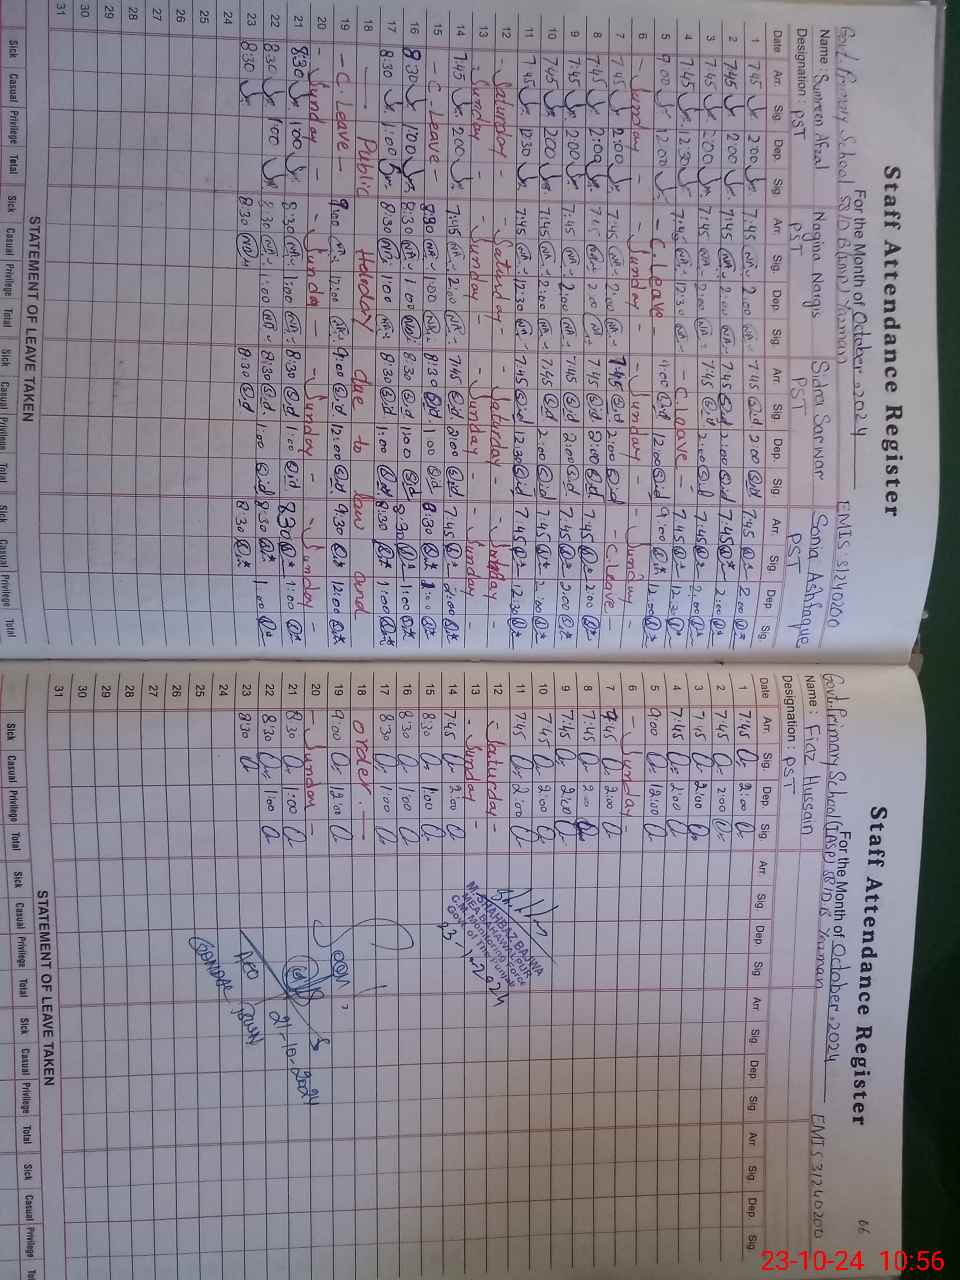 Staff Attendance Register
For the Month of October, 2024
Govt. Primary School 58/D.B (IASP) Yazman EMIS 31240200
Name: Samreen Afzal Nagina Nargis Sidra Sarwar Sonia Ashfaque
Designation: PST PST PST PST
Date Arr. Sig. Dep. Sig. Arr. Sig. Dep. Sig. Arr. Sig. Dep. Sig. Arr. Sig. Dep. Sig.
1 7:45 2:00 7:45 2:00 7:45 Sid 2:00 Sid 7:45 2:00
2 7:45 2:00 7:45 2:00 7:45 Sid 2:00 Sid 7:45 2:00
3 7:45 2:00 7:45 2:00 7:45 Sid 2:00 Sid 7:45 2:00
4 7:45 12:30 7:45 12:30 - C. leave - 7:45 12:30
5 9:00 12:00 - C. Leave - 9:00 Sid 12:00 Sid 9:00 12:00
6 - Sunday - - Sunday - - Sunday - - Sunday -
7 7:45 2:00 7:45 2:00 7:45 Sid 2:00 Sid - C. leave -
8 7:45 2:00 7:45 2:00 7:45 Sid 2:00 Sid 7:45 2:00
9 7:45 2:00 7:45 2:00 7:45 Sid 2:00 Sid 7:45 2:00
10 7:45 2:00 7:45 2:00 7:45 Sid 2:00 Sid 7:45 2:00
11 7:45 12:30 7:45 12:30 7:45 Sid 12:30 Sid 7:45 12:30
12 - Saturday - - Saturday - - Saturday - - Saturday -
13 - Sunday - - Sunday - - Sunday - - Sunday -
14 7:45 2:00 7:45 2:00 7:45 Sid 2:00 Sid 7:45 2:00
15 - C. Leave - 8:30 1:00 8:30 Sid 1:00 Sid 8:30 1:00
16 8:30 1:00 8:30 1:00 8:30 Sid 1:00 Sid 8:30 1:00
17 8:30 1:00 8:30 1:00 8:30 Sid 1:00 Sid 8:30 1:00
18 — Public Holiday due to law and
19 - C. Leave - 9:00 12:00 9:00 Sid 12:00 Sid 9:30 12:00
20 - Sunday - - Sunday - - Sunday - - Sunday -
21 8:30 1:00 8:30 1:00 8:30 Sid 1:00 Sid 8:30 1:00
22 8:30 1:00 8:30 1:00 8:30 Sid 1:00 Sid 8:30 1:00
23 8:30 8:30 8:30 Sid 8:30
24
25
26
27
28
29
30
31
STATEMENT OF LEAVE TAKEN
Sick Casual Privilege Total Sick Casual Privilege Total Sick Casual Privilege Total Sick Casual Privilege Total
66
Staff Attendance Register
For the Month of October, 2024
Govt. Primary School (IASP) 58/D.B Yazman EMIS 31240200
Name: Fiaz Hussain
Designation: PST
Date Arr. Sig. Dep. Sig. Arr. Sig. Dep. Sig. Arr. Sig. Dep. Sig. Arr. Sig. Dep. Sig.
1 7:45 2:00
2 7:45 2:00
3 7:45 2:00
4 7:45 2:00
5 9:00 12:00
6 - Sunday -
7 7:45 2:00
8 7:45 2:00
9 7:45 2:00
10 7:45 2:00
11 7:45 2:00
12 - Saturday -
13 - Sunday -
14 7:45 2:00
15 8:30 1:00
16 8:30 1:00
17 8:30 1:00
18 order. —
19 9:00 12:00
20 - Sunday -
21 8:30 1:00
22 8:30 1:00
23 8:30
24
25
26
27
28
29
30
31
M. SHAHBAZ BAJWA
MEA BAHAWALPUR
C.M. Monitoring Force
Govt of The Punjab
Seen
21-10-2024
AEO
STATEMENT OF LEAVE TAKEN
Sick Casual Privilege Total Sick Casual Privilege Total Sick Casual Privilege Total Sick Casual Privilege Total
23-10-24 10:56